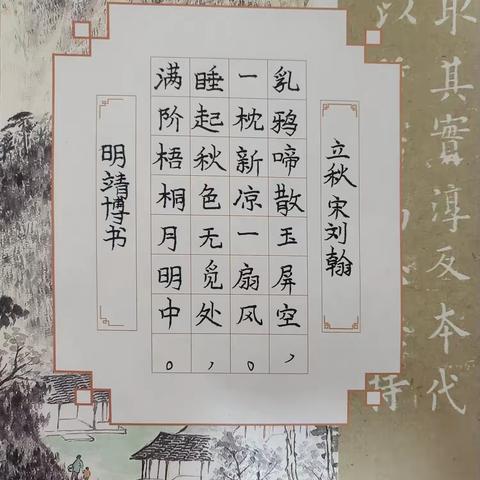 立秋 宋 刘翰
乳鸦啼散玉屏空，
一枕新凉一扇风。
睡起秋色无觅处，
满阶梧桐月明中。
明靖博书
其實淳反本代